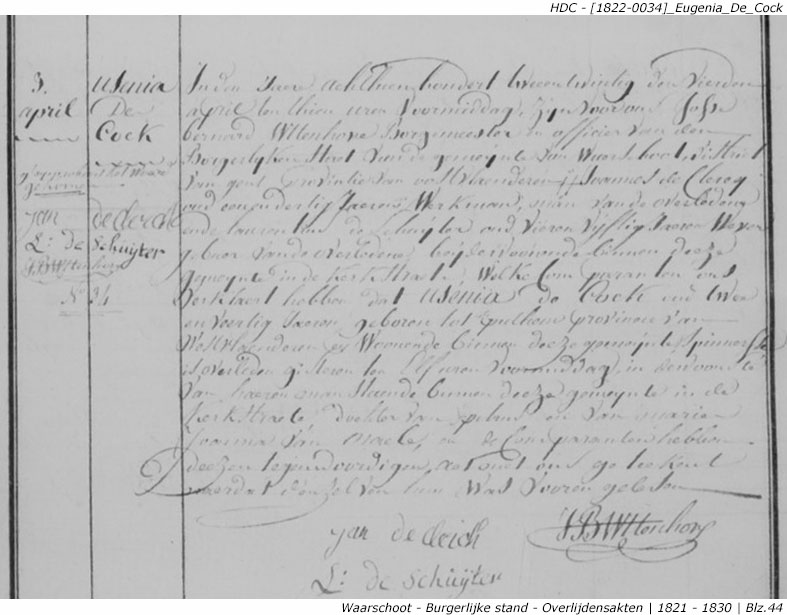 HDC - [1822-0034]_Eugenia_De_Cock
3.
april
Usenia
De
Cock
jan declerck
L: de Schuijter
J B Wttenhove
N° 34
In den Jaere achthien hondert twee en twintig den vierden
april ten thien uren voormiddag, zijn voor ons Joseph
bernard Wttenhove Borgemeester en officier van den
Borgerlijken Staet van de gemeijnte van Waerschoot, district
van gent provintie van oost vlaenderen Joannes de Clercq
oud een en dertig Jaeren, Werkman, man van de overledene
ende laurentius de Schuijter oud vier en vijftig Jaeren Wever
gebuer van de overledene, beijde woonende binnen deeze
gemeijnte in de kerk Straete, Welke Comparanten ons
verklaert hebben dat Usenia de Cock oud twee
en veertig Jaeren, geboren tot provincie van
oost vlaenderen en Woonende binnen deeze gemeijnte, Spinnersse
is overleden gisteren ten Elf uren voormiddag, in
van haeren man Staende binnen deeze gemeijnte in de
kerk Straete dochter van en van marie
Joanna Van en de Comparanten hebben
deezen tegenwoordigen act met ons geteekent
naer dat was vooren gelesen
jan declerck
J B Wttenhove
L: de Schuijter
Waarschoot - Burgerlijke stand - Overlijdensakten | 1821 - 1830 | Blz.44